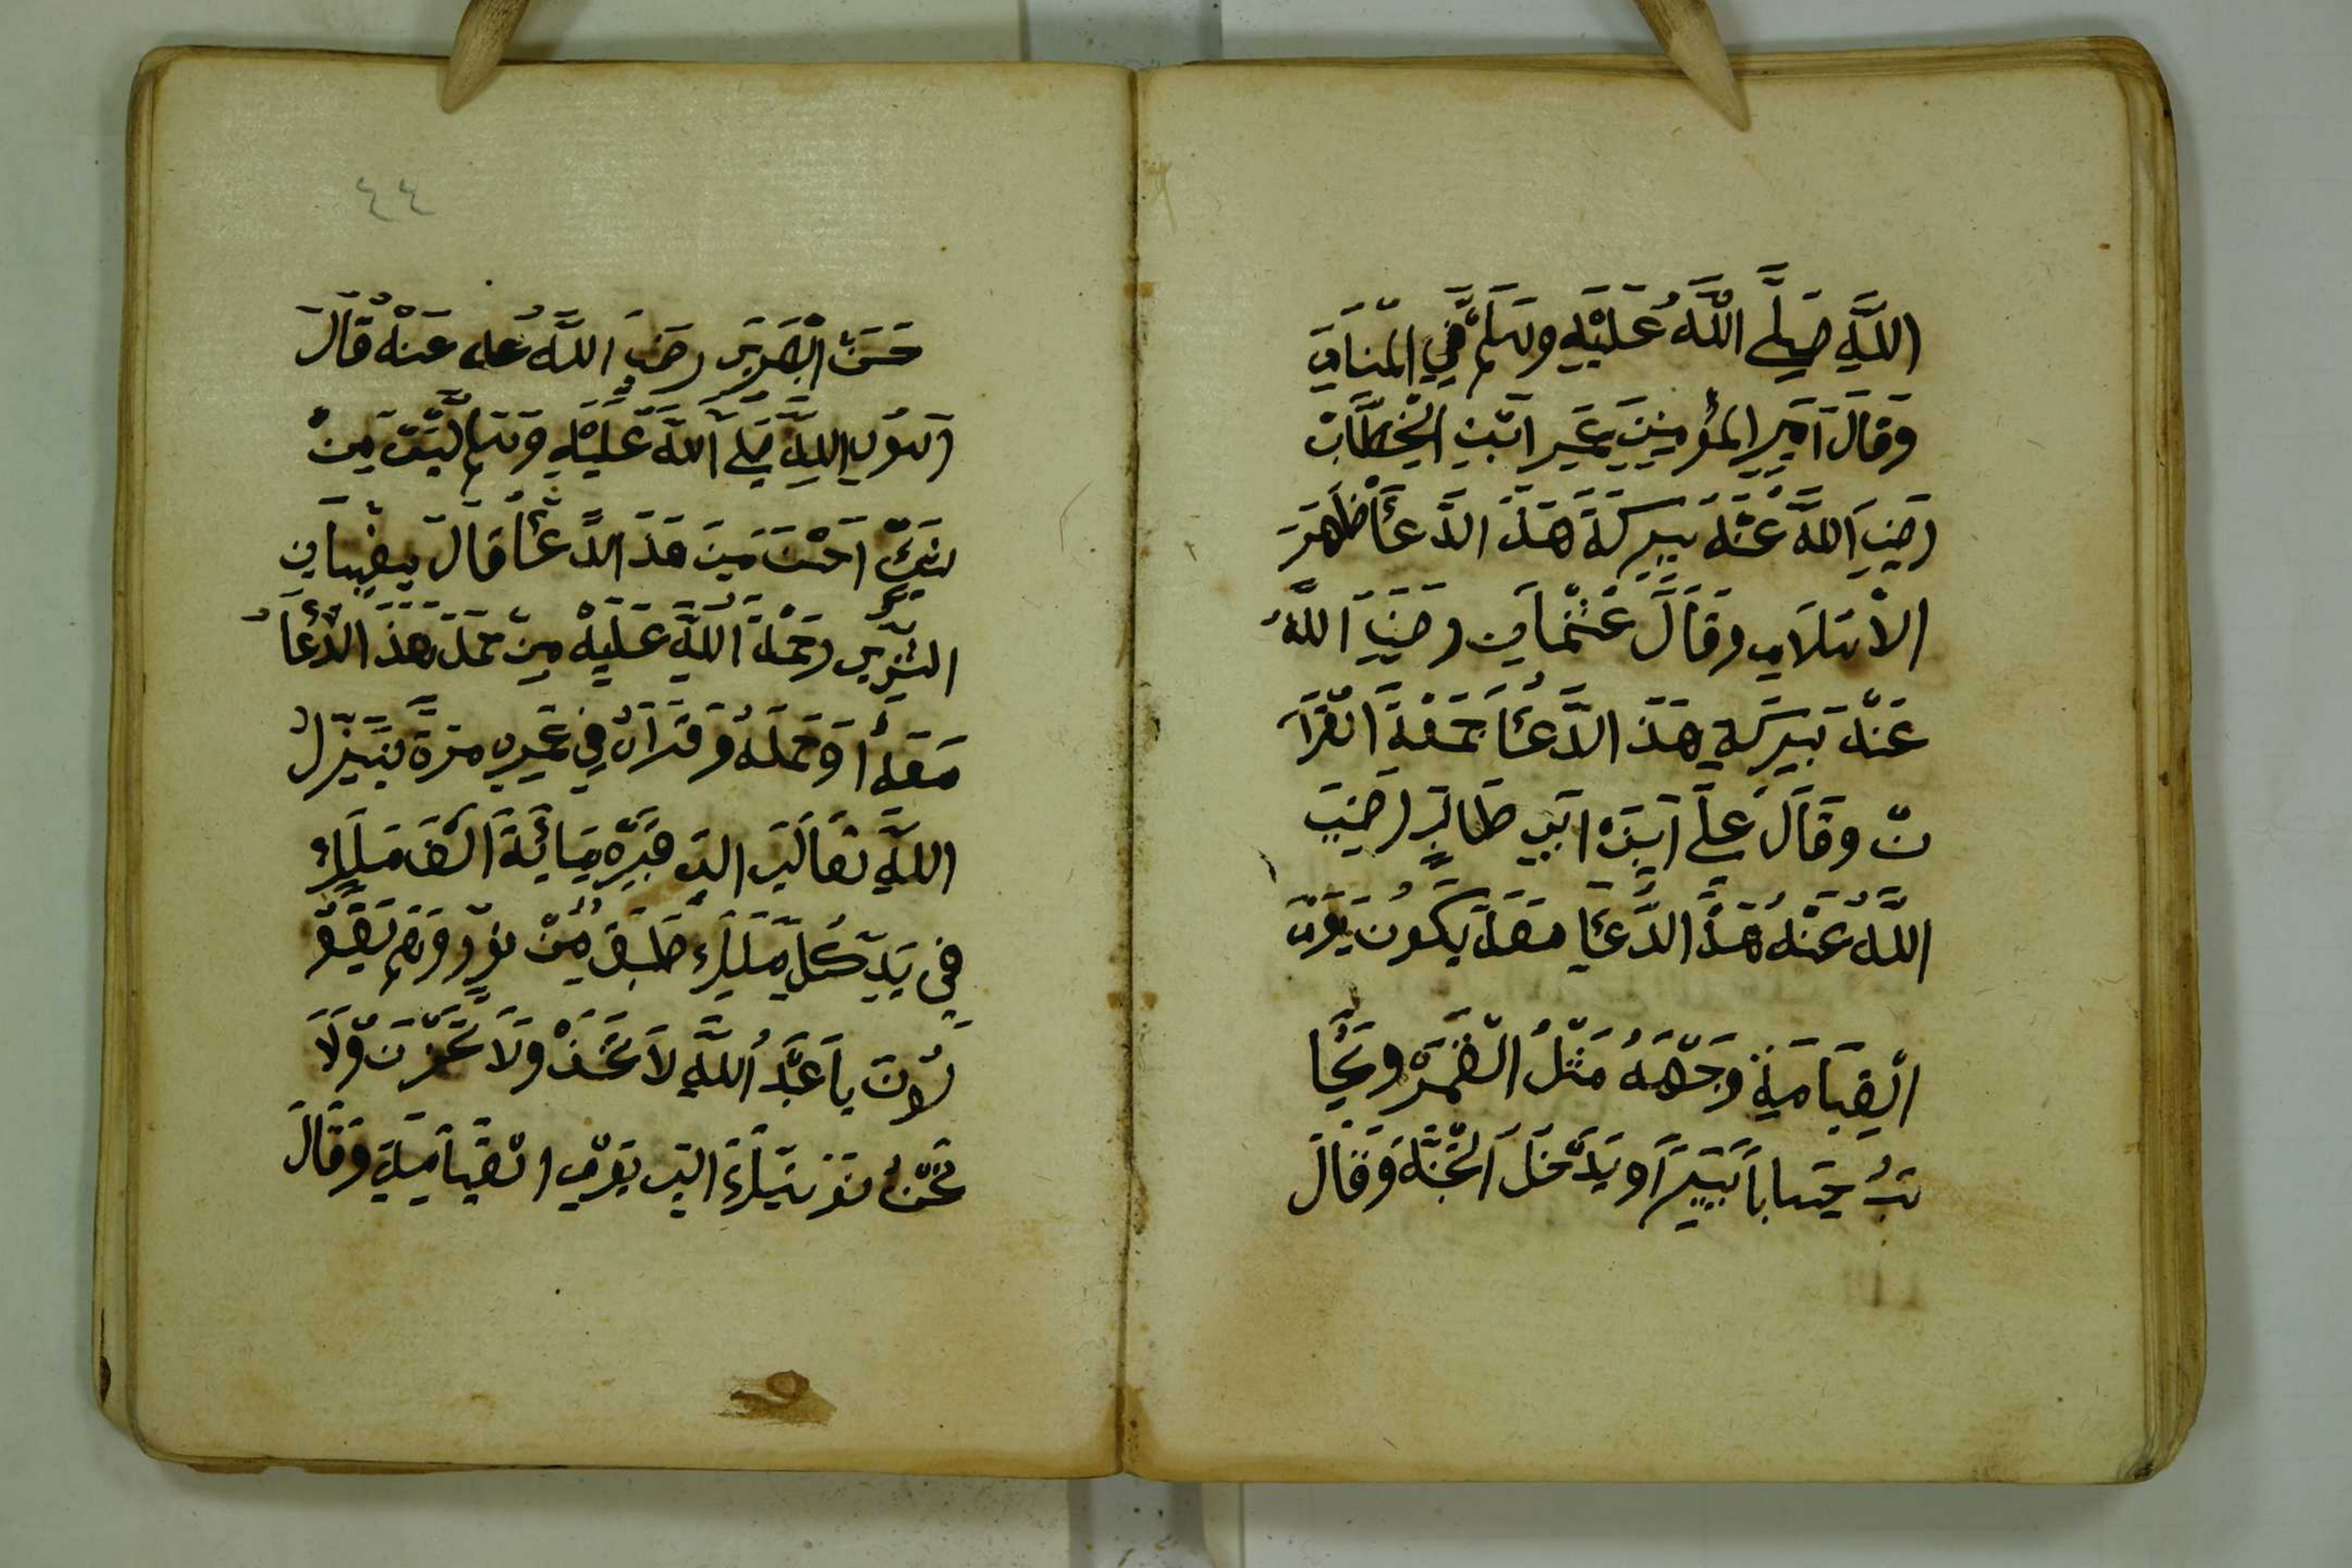 اللَّهِ صَلَّى اللَّهُ عَلَيْهِ وسَلَّم فِي الْمَنَامِ
وَقَالَ اَمِيرِ الْمُؤْمِنِينَ عُمَرِ ابْنِ الْخَطَّابْ
رَضِيَ اللَّهَ عَنْهَ بِبِرَكَةَ هَذَ الدَّعَأَ ظَهَرَ
الْاسْلَامِ وَقَالَ عَثْمَانِ رَضِيَ اللَّهُ
عَنْهَ بَبِرَكَةِ هَذَ الدَّعَأَ جَمَعْةَ الْقُرَأ
نْ وَقَالَ عَلِي اَبِنْ ابِي طَالِبٍ رَضِيَ
اللَّهُ عَنْهُ هَذَ الدُّعَأِ مَعَهَ يَكُونَ يَوْمَ
الْقِيَامَةِ وَجْهَهُ مَثْلُ الْقَمَرْ وَيُحَا
سَبُ حِسَابَاً يَسِيرَاً وَيَدْخَلَ الْجَنَّةَ وَقَالَ
٤٤
حَسَنْ الْبَصْرِي رَضِيَ اللَّهُ عَنْهُ قَالَ
رَسُولِ اللَّهِ صَلَّى اللَّهَ عَلَيْهِ وَسَلم لَيْسَ مِنْ
احْسَنَ مِنَ هَذَ الدُّعَأُ قَالَ سِفْيَانِ
الثَّوْرِي رَحْمَةَ اللَّهِ عَلَيْهِ مِنْ حَمَلَ هَذَ الدُّعَأُ
مَعَهُ اَوْ حَمَلَهُ وَ قَرَاَهُ فِي عُمْرِهِ مَرَةً يَنْزِلُ
اللَّهِ تَعَالَى الى قَبْرِهِ مِائَةَ اَلْفَ مَلَكٍ
فِي يَدِ كُلِ مَلَكٍ طَبَقَ مِنْ نُورٍ وَهُم يَقُو
لُونَ يَا عَبْدُ اللَّهِ لَا تَخَفْ وَلَا تَحْزَنَ وَلَا
نَحْنُ نُوْنِسَكَ الى يَوْمِ الْقِيَامَةِ وَقَالَ